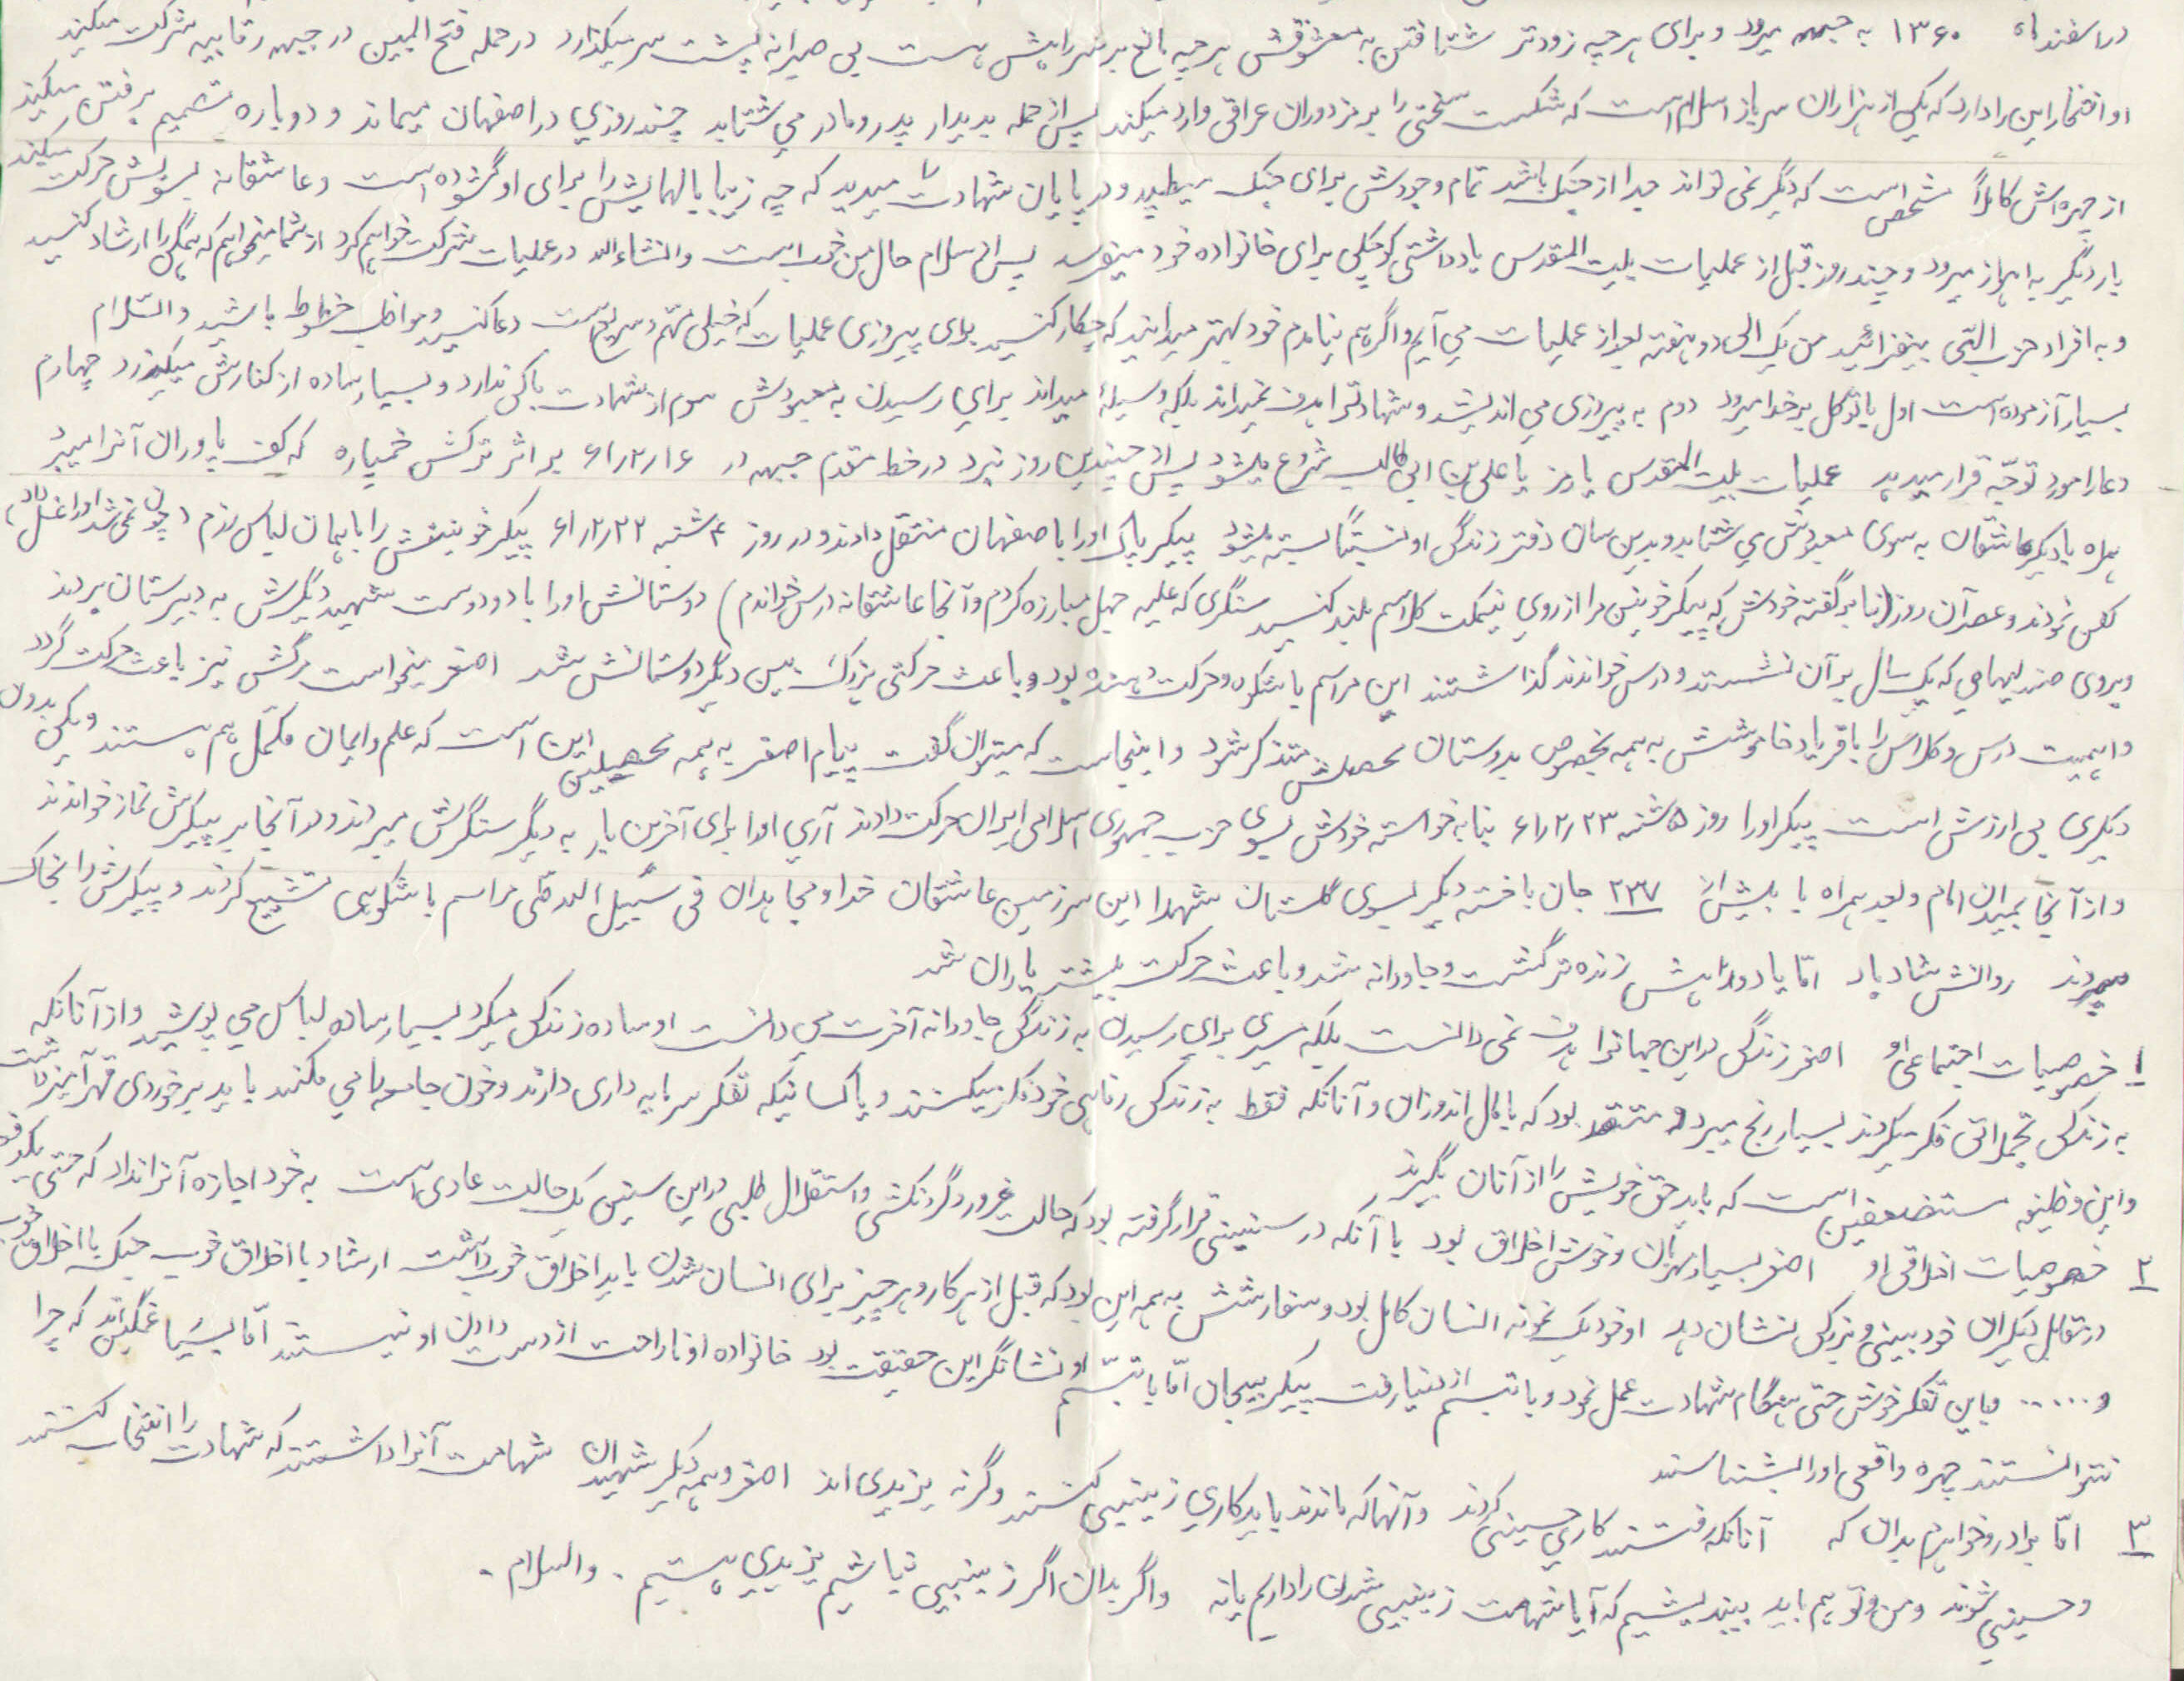 در اسفند ماه ۱۳۶۰ به جبهه میرود و برای هر چه زودتر شتافتن به معشوقش هر چه مانع بر سر راهش هست بی صبرانه پشت سر میگذارد در حمله فتح المبین در جبهه رقابیه شرکت میکند
او افتخار این را دارد که یکی از هزاران سرباز اسلام است که شکست سختی را بر مزدوران عراقی وارد میکند پس از حمله بدیدار پدر و مادر می شتابد چند روزی در اصفهان میماند و دوباره تصمیم برفتن میکند
از چهره اش کاملاً مشخص است که دیگر نمی تواند جدا از جنگ باشد تمام وجودش برای جنگ میطپید و در پایان شهادت را میدید که چه زیبا بالهایش را برای او گشوده است و عاشقانه بسویش حرکت میکند
بار دیگر به اهواز میرود و چند روز قبل از عملیات بیت المقدس یادداشتی کوچکی برای خانواده خود مینویسد پس از سلام حال من خوب است و انشاءالله در عملیات شرکت خواهم کرد از شما میخواهم که همگی را ارشاد کنید
و به افراد حزب الهی بیفزائید من یک الی دو هفته بعد از عملیات می آیم و اگر هم نیامدم خود بهتر میدانید که چکار کنید برای پیروزی عملیات که خیلی مهم و سریع است دعا کنید و مواظب خطوط باشید والسّلام
بسیار آزموده است اول با توکل بر خدا میرود دوم به پیروزی می اندیشد و شهادت را هدف نمیداند بلکه وسیلهٔ میداند برای رسیدن به معبودش سوم از شهادت باکی ندارد و بسیار ساده از کنارش میگذرد چهارم
دعا را مورد توجّه قرار میدهد عملیات بیت المقدس با رمز یا علی بن ابی طالب شروع میشود پس از چندین روز نبرد در خط مقدم جبهه در ۶۱/۲/۱۶ بر اثر ترکش خمپاره که کف پا و ران آنرا میبرد
همراه با دیگر عاشقان به سوی معبودش می شتابد و بدین سان دفتر زندگی او بسته میشود پیکر پاک او را به اصفهان منتقل دادند و در روز ۴ شنبه ۶۱/۲/۲۲ پیکر خونینش را با همان لباس رزم (چون نمی شد او را غسل داد)
کفن نمودند و عصر آن روز (بنا بر گفته خودش که پیکر خونین مرا از روی نیمکت کلاسم بلند کنید سنگری که علیه جهل مبارزه کردم و آنجا عاشقانه درس خواندم) دوستانش او را با دو دوست شهید دیگرش به دبیرستان بردند
و بروی صندلیهایی که یک سال بر آن نشستند و درس خواندند گذاشتند این مراسم با شکوه و حرکت دهنده بود و باعث حرکتی بزرگ بین دیگر دوستانش شد اصغر میخواست مرگش نیز باعث حرکت گردد
و اهمیت درس و کلاس را با فریاد خاموشش به همه بخصوص بدوستان محصلش متذکر شود و اینجاست که میتوان گفت پیام اصغر به همه محصلین این است که علم و ایمان مکمّل هم هستند و یکی بدون
دیگری بی ارزش است پیکر او را روز ۵ شنبه ۶۱/۲/۲۳ بنا به خواسته خودش بسوی حزب جمهوری اسلامی ایران حرکت دادند آری او را برای آخرین بار به دیگر سنگرش میبردند و در آنجا بر پیکرش نماز خواندند
و از آنجا بمیدان امام و بعد همراه با بیش از ۲۳۷ جان باخته دیگر بسوی گلستان شهدا این سرزمین عاشقان خدا و مجاهدان فی سبیل الله طی مراسم باشکوهی تشییع کردند و پیکرش را بخاک
سپردند روانش شاد باد امّا یاد و راهش زنده تر گشت و جاودانه شد و باعث حرکت بیشتر یاران شد
۱ خصوصیات اجتماعی او اصغر زندگی در این جهان را هدف نمی دانست بلکه مسیری برای رسیدن به زندگی جاودانه آخرت می دانست او ساده زندگی میکرد بسیار ساده لباس می پوشید و از آنانکه
به زندگی تجملاتی فکر میکردند بسیار رنج میبرد و معتقد بود که با مال اندوزان و آنانکه فقط به زندگی رفاهی خود فکر میکنند و یا کسانیکه تفکر سرمایه داری دارند و خون جامعه را می مکند باید برخوردی قهرآمیز داشت
و این وظیفه مستضعفین است که باید حق خویش را از آنان بگیرند
۲ خصوصیات اخلاقی او اصغر بسیار مهربان و خوش اخلاق بود با آنکه در سنینی قرار گرفته بود که حالت غرور و گردنکشی و استقلال طلبی در این سنین یک حالت عادی است به خود اجازه آنرا نداد که حتی یکدفعه
در مقابل دیگران خودبینی و بزرگی نشان دهد او خود یک نمونه انسان کامل بود و سفارشش به همه این بود که قبل از هر کار و هر چیز برای انسان شدن باید اخلاق خوب داشت ارشاد با اخلاق خوب جنگ با اخلاق خوب
و ..... و باین تفکر خویش حتی هنگام شهادت عمل نمود و با تبسم از دنیا رفت پیکر بیجان امّا با تبسّم او نشانگر این حقیقت بود خانواده او ناراحت از دست دادن او نیستند امّا بسیار غمگین اند که چرا
نتوانستند چهره واقعی او را بشناسند
۳ امّا برادر و خواهرم بدان که آنانکه رفتند کاری حسینی کردند و آنها که ماندند باید کاری زینبی کنند و گرنه یزیدی اند اصغر و همه دیگر شهیدان شهامت آنرا داشتند که شهادت را انتخاب کنند
و حسینی شوند و من و تو هم باید بیندیشیم که آیا شهامت زینبی شدن را داریم یا نه و اگر بدان اگر زینبی نباشیم یزیدی هستیم . والسلام .